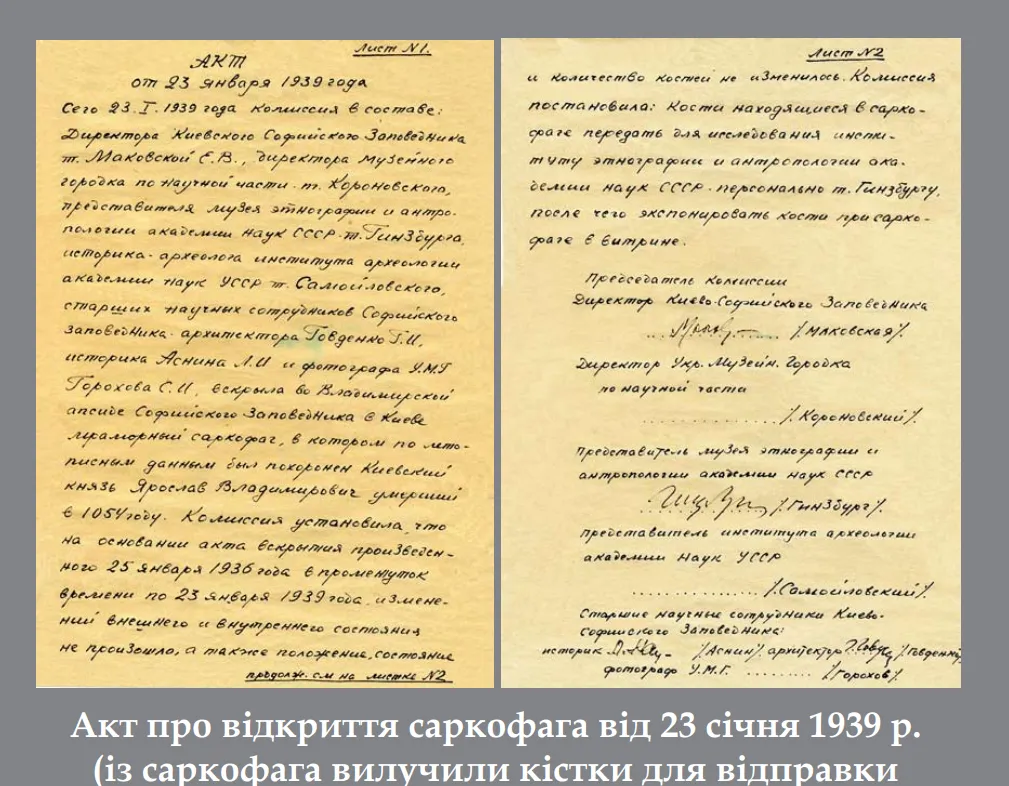 Лист N1.
АКТ
от 23 января 1939 года
Сего 23. I. 1939 года комиссия в составе:
Директора Киевского Софийского Заповедника
т. Маковской Е.В., директора музейного
городка по научной части т. Короновского,
представителя музея этнографии и антро-
пологии академии наук СССР т. Гинзбурга,
историка-археолога института археологии
академии наук УССР т. Самойловского,
старших научных сотрудников Софийского
Заповедника-архитектора Говденко Г.И,
историка Аснина Л.И и фотографа У.М.Г
Горохова С.И, вскрыла во Владимирской
апсиде Софийского Заповедника в Киеве
мраморный саркофаг, в котором по лето-
писным данным был похоронен Киевский
князь Ярослав Владимирович умерший
в 1054 году. Комиссия установила, что
на основании акта вскрытия произведен-
ного 25 января 1936 года в промежуток
времени по 23 января 1939 года, измене-
ний внешнего и внутреннего состояния
не произошло, а также положение, состояние
продолж. см на листке N2
Лист N2
и количество костей не изменилось. Комиссия
постановила: Кости находящиеся в сарко-
фаге передать для исследования инсти-
туту этнографии и антропологии ака-
демии наук СССР персонально т. Гинзбургу,
после чего экспонировать кости при сарко-
фаге в витрине.
Председатель комиссии
Директор Киево-Софийского Заповедника
/Маковская/.
Директор Укр. Музейн. Городка
по научной части
/Короновский/.
представитель музея этнографии и
антропологии академии наук СССР
/Гинзбург/.
представитель института археологии
академии наук УССР
/Самойловский/.
Старшие научные сотрудники Киево-
Софийского Заповедника:
историк /Аснин/. архитектор /Говденко/
фотограф У.М.Г. /Горохов/.
Акт про відкриття саркофага від 23 січня 1939 р.
(із саркофага вилучили кістки для відправки